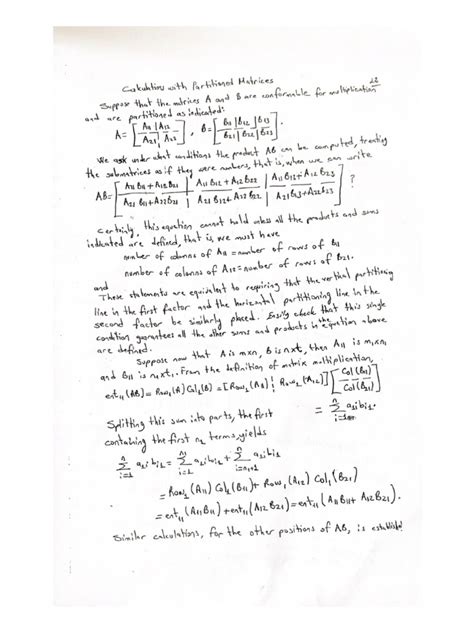 Calculations with Partitioned Matrices
22
Suppose that the matrices A and B are conformable for multiplication
and are partitioned as indicated:
A = [A11 | A12 / A21 | A22], B = [B11 | B12 | B13 / B21 | B22 | B23].
We ask under what conditions the product AB can be computed, treating
the submatrices as if they were numbers, that is, when we can write
AB = [A11 B11 + A12 B21 | A11 B12 + A12 B22 | A11 B13 + A12 B23 / A21 B11 + A22 B21 | A21 B12 + A22 B22 | A21 B13 + A22 B23] ?
Certainly, this equation cannot hold unless all the products and sums
indicated are defined, that is, we must have
number of columns of A11 = number of rows of B11
and
number of columns of A12 = number of rows of B21.
These statements are equivalent to requiring that the vertical partitioning
line in the first factor and the horizontal partitioning line in the
second factor be similarly placed. Easily check that this single
condition guarantees all the other sums and products in the equation above
are defined.
Suppose now that A is mxn, B is nxt, then A11 is m1xn1
and B11 is n1xt1. From the definition of matrix multiplication,
ent11(AB) = Row1(A) Col1(B) = [Row1(A11) | Row1(A12)] [Col1(B11) / Col1(B21)]
= n∑i=1 a1i bi1.
Splitting this sum into parts, the first
containing the first n1 terms, yields
n∑i=1 a1i bi1 = n1∑i=1 a1i bi1 + n∑i=n1+1 a1i bi1
= Row1(A11) Col1(B11) + Row1(A12) Col1(B21)
= ent11(A11B11) + ent11(A12B21) = ent11(A11B11 + A12B21).
Similar calculations, for the other positions of AB, is established